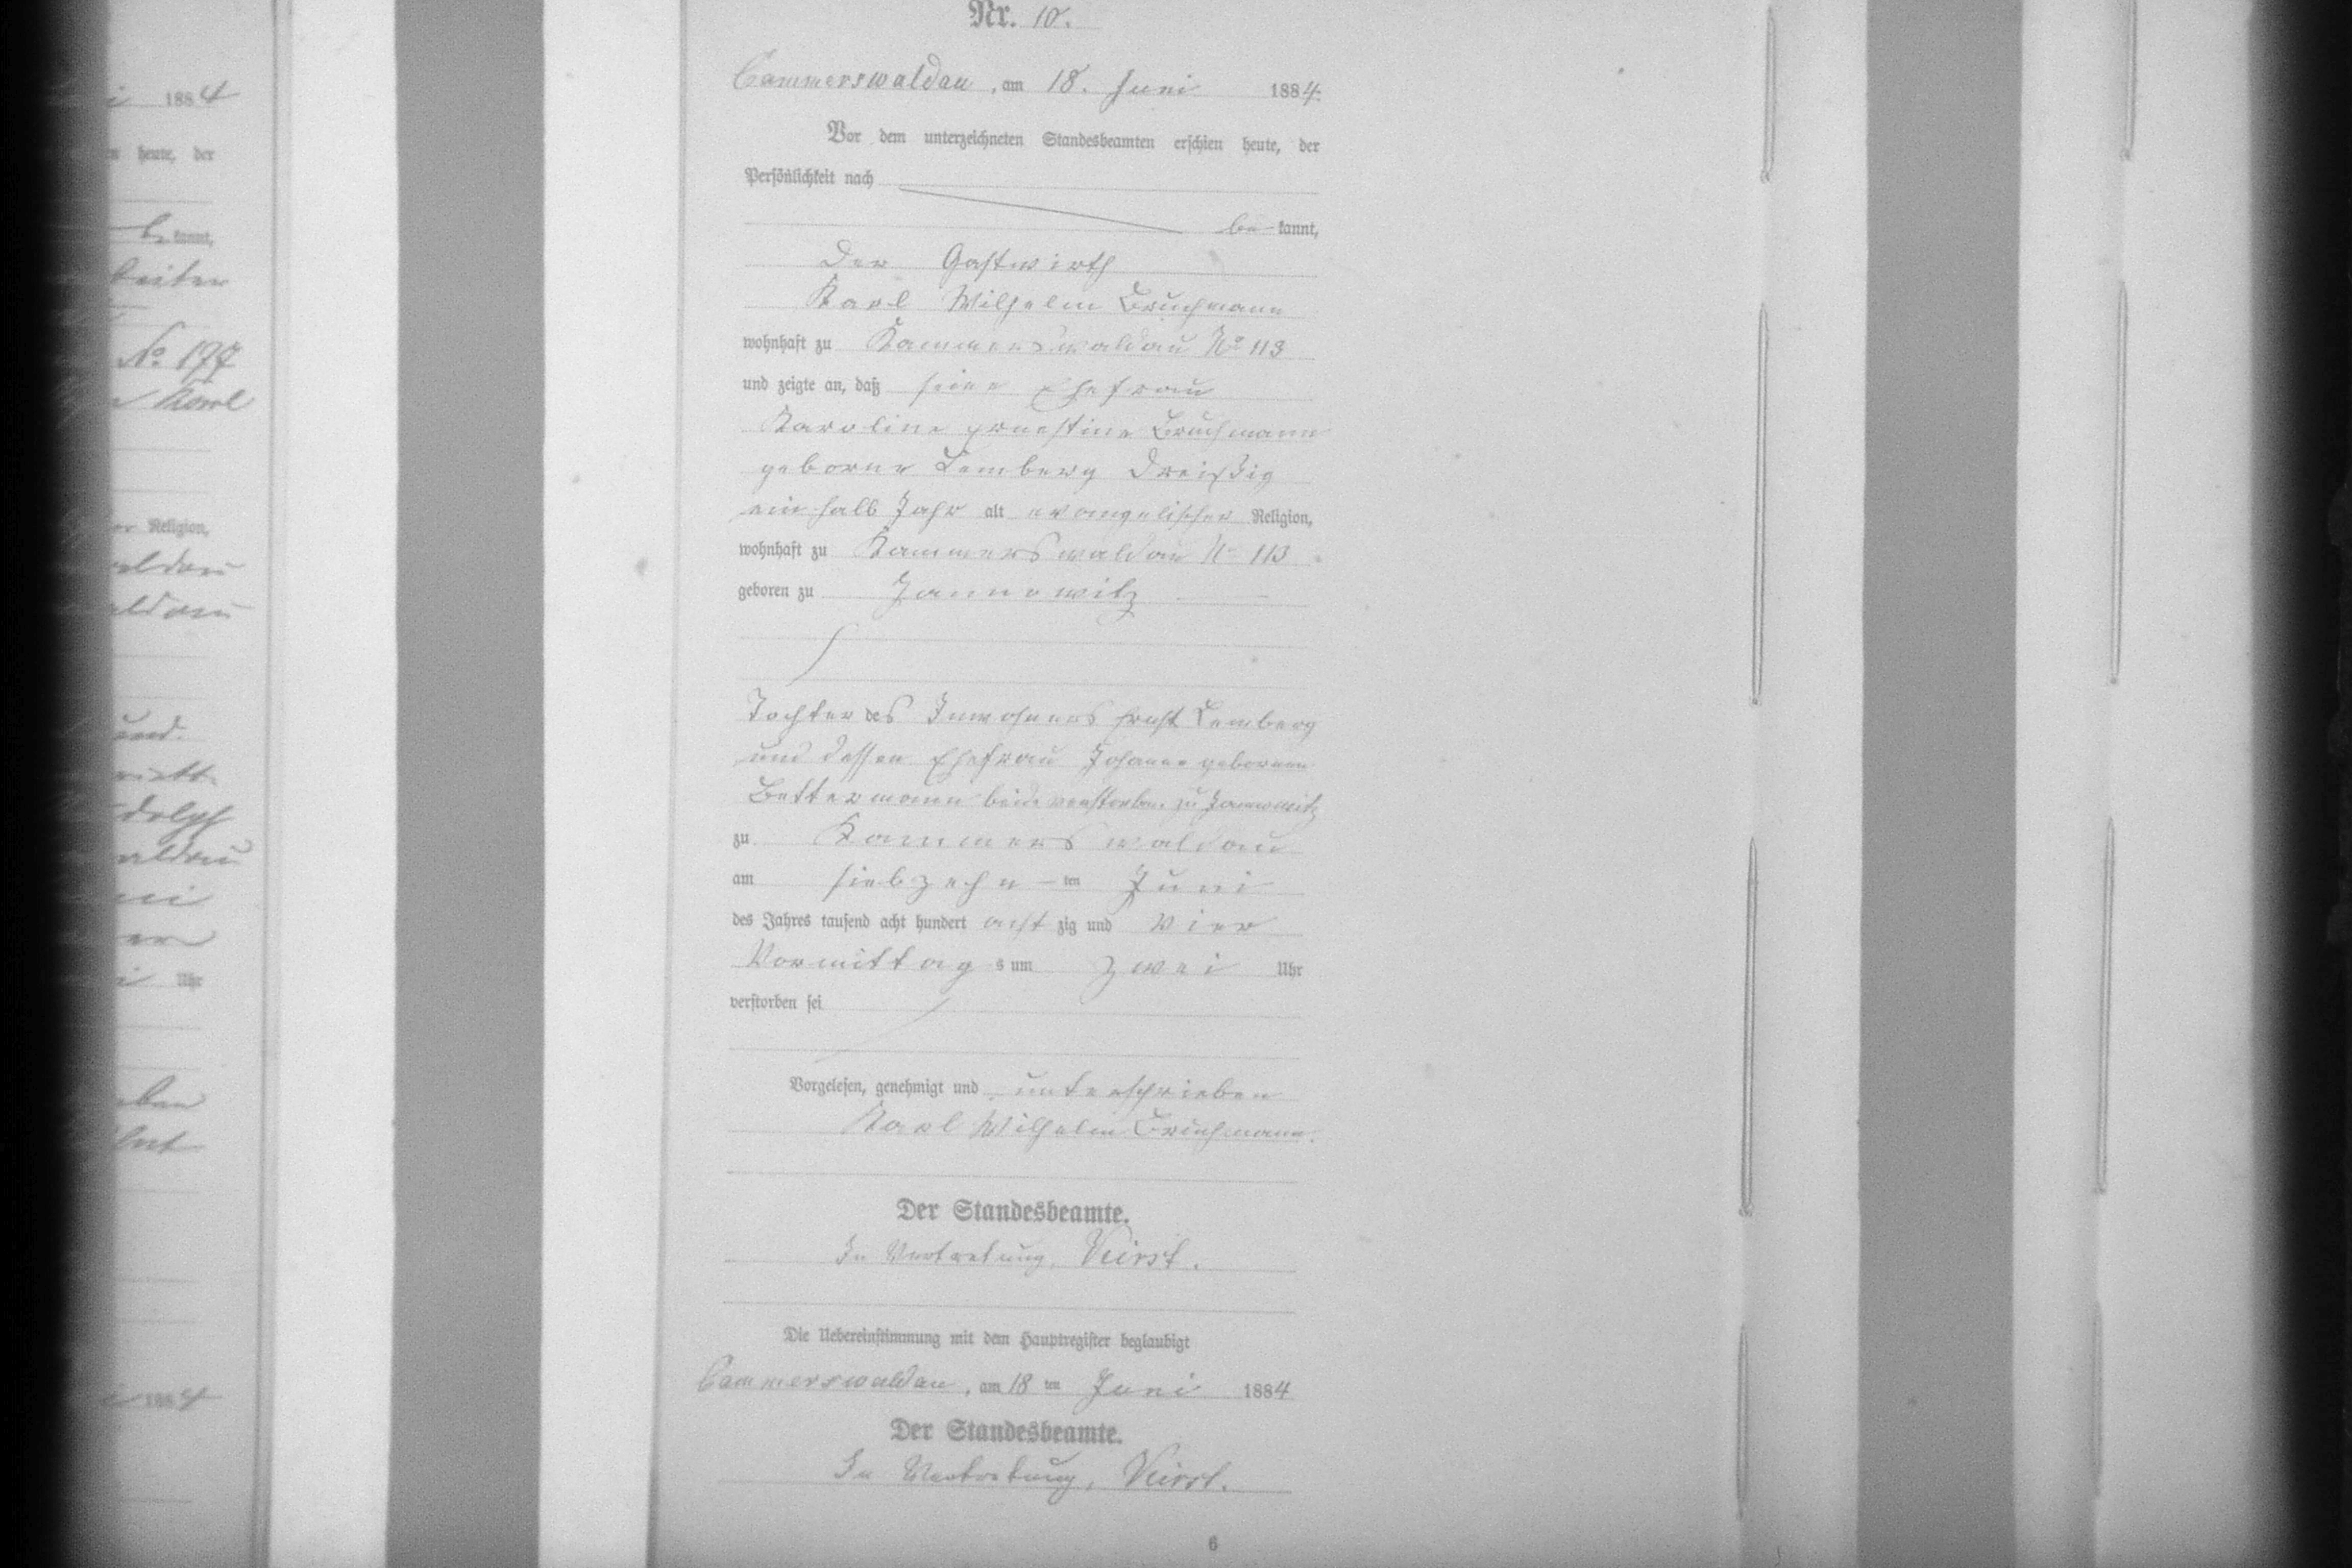 Nr. 10.
Cammerswaldau, am 18. Juni 1884.
Vor dem unterzeichneten Standesbeamten erschien heute, der
Persönlichkeit nach
be-kannt,
der Gastwirth
Karl Wilhelm Bruchmann
wohnhaft zu Kammerswaldau No 113
und zeigte an, daß seine Ehefrau
Karoline Ernestine Bruchmann
geborne Lemberg dreißig
ein halb Jahr alt evangelischer Religion,
wohnhaft zu Kammerswaldau No 113
geboren zu Jannowitz
Tochter des Inwohners Ernst Lemberg
und dessen Ehefrau Johanne geborenen
Bettermann beide verstorben zu Jannowitz
zu Kammerswaldau
am siebzehn-ten Juni
des Jahres tausend acht hundert acht zig und vier
Vormittag s um zwei Uhr
verstorben sei
Vorgelesen, genehmigt und unterschrieben
Karl Wilhelm Bruchmann.
Der Standesbeamte.
In Vertretung,
Die Uebereinstimmung mit dem Hauptregister beglaubigt
Cammerswaldau, am 18 ten Juni 1884
Der Standesbeamte.
In Vertretung,
6
1884
heute, der
kannt,
No. 177
Karl
Religion,
Uhr
1884